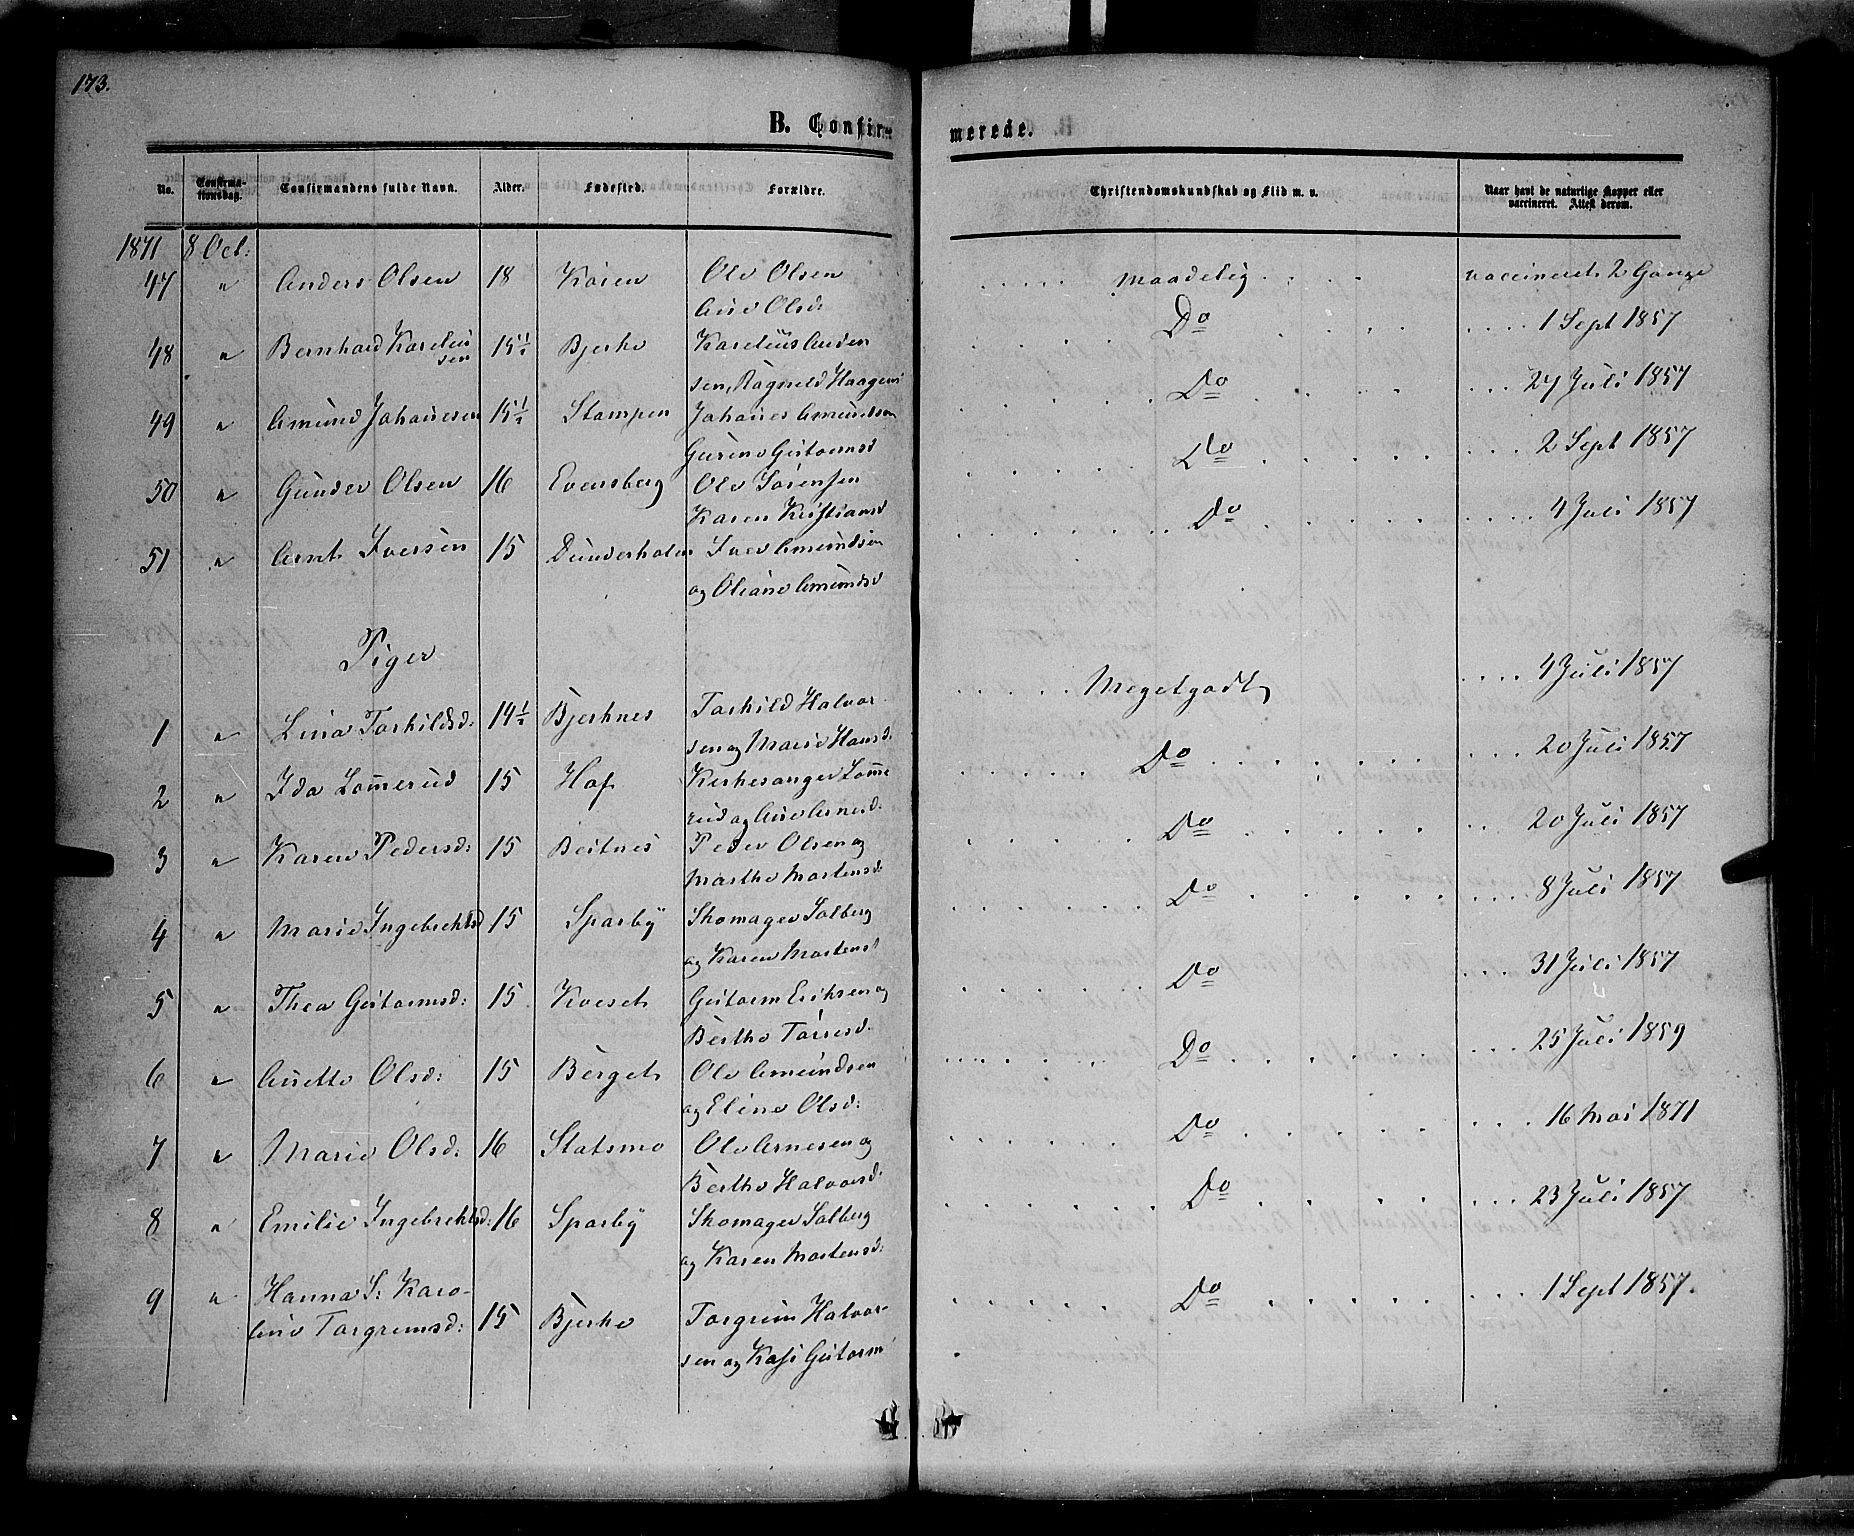 173.
B. Confirmerede.
No. Confirmationsdag. Confirmandens fulde Navn. Alder. Fødested. Forældre. Christendomskundskab og Flid m. v. Naar havt de naturlige Kopper eller vaccineret. Attest derom.
1871 8 Oct:
47 " Anders Olsen 18 Kôien Ole Olsen maadelig vaccineret 2 Gange
Ane Olsd:
48 " Bernhard Karelius 15½ Bjerke Karelius Anden Do 1 Sept 1857
sen sen, Ragnild Haagens
49 " Amund Johannesen 15½ Stampen Johanes Amundsen Do 27 Juli 1857
Gurine Gutormsd
50 " Gunder Olsen 16 Evensberg Ole Sørensen Do 2 Sept 1857
Karen Kristiansd
51 " Arnt Iversen 15 Dunderholen Iver Amundsen Do 4 Juli 1857
og Oliane Amundsd
Piger
1 " Lina Torkildsd: 14½ Bjerknes Torkild Halvor- Megetgodt 4 Juli 1857
sen og Marie Hansd:
2 " Ida Lomerud 15 Hof Kirkesanger Lome Do 20 Juli 1857
rud og Ane Arnesd:
3 " Karen Pedersd: 15 Beitnes Peder Olsen og Do 20 Juli 1857
Marthe Mortensd:
4 " Marie Ingebrektsd 15 Sparby Skomager Solberg Do 8 Juli 1857
og Karen Mortensd
5 " Thea Gutormsd: 15 Kveset Gutorm Eriksen og Do 31 Juli 1857
Berthe Torresd.
6 " Anette Olsd: 15 Berget Ole Amundsen Do 25 Juli 1859
og Eline Olsd:
7 " Marie Olsd: 16 Statsmo Ole Arnesen og Do 16 Mai 1871
Berthe Halvorsd:
8 " Emilie Ingebrektsd: 16 Sparby Skomager Solberg Do 23 Juli 1857
og Karen Mortensd:
9 " Hanna S: Karo- Do 1 Sept 1857.
line Torgrimsd: 15 Bjerke Torgrim Halvor-
sen og Kasi Gutorm